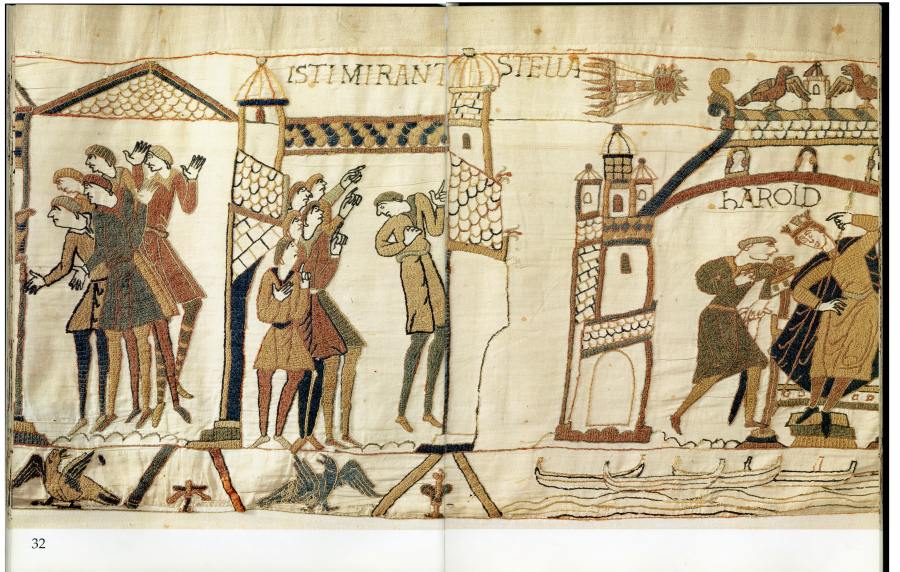 ISTI MIRANT STELLA
HAROLD
32